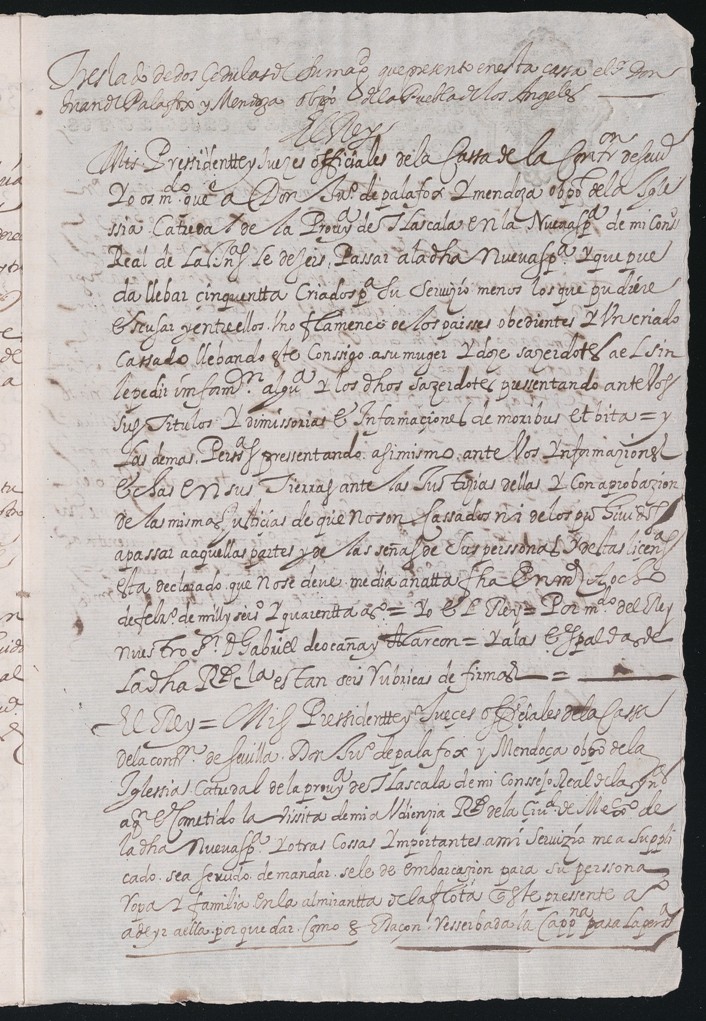 Treslado de dos Cedulas de Su mag.d que presento en esta cassa el s.r Don
Juan de Palafox y Mendoza obpo de la Puebla de los Angeles
El Rey
Mis Pressidentte y Juezes officiales de la Cassa de la Con.on de Seui.a
Yo os m.do que a Don Ju.o de palafox y mendoza obpo de la Igle
ssia Catredal de la Prou.a de Tlascala en la Nueuaesp.a de mi Cons.o
Real de las Ins le dejeis Passar a la dha Nueuaesp.a Y que pue
da llebar cinquentta Criados p.a Su Seruizio menos los que pudiere
escusar y entre ellos Uno flamenco de los paisses obedientes Y Un criado
Cassado llebando este Conssigo a su muger Y doze sazerdotes a el sin
le pedir imform.on algu.a Y los dhos sazerdotes pressentando ante Vos
sus Titulos Y dimissorias e Informaciones de moribus et bita = y
las demas Perss.s pressentando asimismo ante Vos Ynformaziones
echas en sus Tierras ante las Justizias dellas Y Con aprobazion
de las mismas Justicias de que no son Cassados ni de los prohiuidos
a passar a aquellas partes y de las señas de Sus perssonas Y destas licen.s
esta declarado que no se deue media anatta fha En m.d A ocho
de feb.o de mill y seis.o Y quarentta a.s = Yo El Rey = Por m.do del Rey
nuestro s.r D Gabriel de ocaña y Alarcon = Y a las espaldas de
La dha R.l c.la estan seis Rubricas de firmas =
El Rey = Mis Pressidentte y Jueces officiales de la Cassa
de la contt.on de Seuilla Don Ju.o de palafox y Mendoça obpo de la
Iglessia Catredal de la prou.a de Tlascala de mi Conssejo Real de las Yn.s
a q.n e Cometido la Vissita de mi Audienzia R.l de la Ciu.d de Mex.co de
la dha Nueuaesp.a Y otras Cossas Ymportantes a mi Seruizio me a Suppli
cado sea seruido de mandar se le de embarcasion para su perssona
ropa Y familia en la almirantta de la flota que este pressente a.o
a de yr a ella porque dar Como es Raçon Resserbada la Capp.na para la perss.a